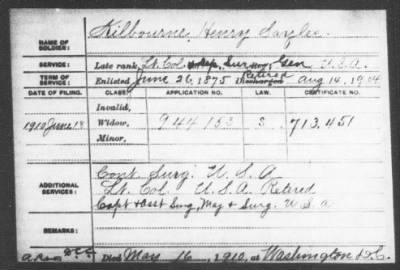 NAME OF SOLDIER: Kilbourne, Henry
SERVICE: Late rank, Lt. Col. Dep. Sur. Gen U.S.A.
TERM OF SERVICE: Enlisted June 26, 1875 Retired Discharged Aug 14, 1904
DATE OF FILING. CLASS. APPLICATION NO. LAW. CERTIFICATE NO.
Invalid,
1910 June 18 Widow, 944153 S. 713.451
Minor,
ADDITIONAL SERVICES: Cont Surg. U.S.A
Lt. Col. U.S.A Retired
Capt & Asst Surg, Maj & Surg. U.S.A
REMARKS:
Died May 16, 1910, at Washington D.C.